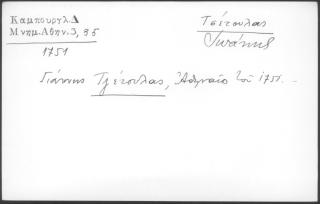 Καμπουργλ.Δ
Μνημ.Αθην.3, 35
1751
Τσέτουλας
Ιωάννης
Γιάννης Τζέτουλας, Ἀθηναῖο τοῦ 1751.